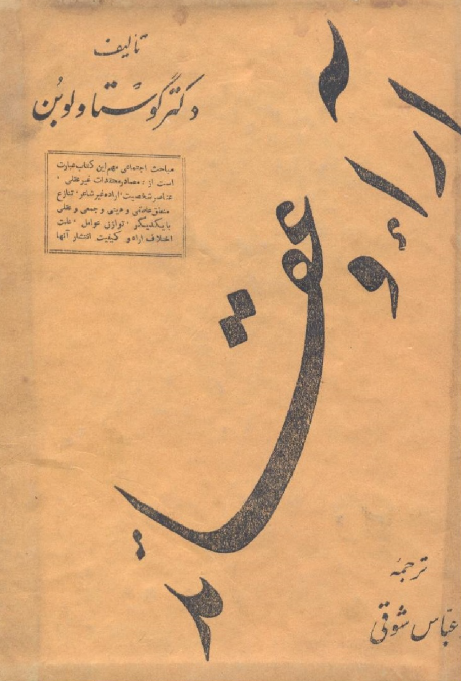 تألیف
دکتر گوستاو لوبُن
مباحث اجتماعی مهم این کتاب عبارت
است از: مصادر معتقدات غیر عقلی ٠
عناصر شخصیت ٠ اراده غیر شاعر ٠ تنازع
منطق عاطفی و دینی و جمعی و عقلی
با یکدیگر ٠ توازن عوامل ٠ علت
اختلاف آراء و کیفیت انتشار آنها
آراء و
عقاید
ترجمهٔ
عباس شوقی